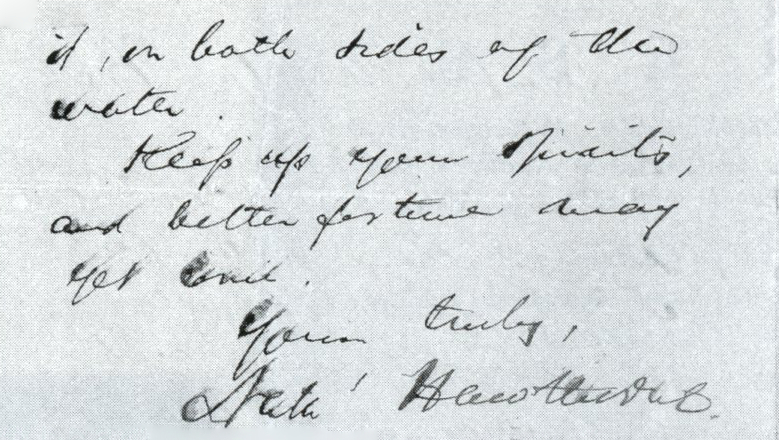 it, on both sides of the
water.
Keep up your spirits,
and better fortune may
yet come.
Yours truly,
Nath' Hawthorne.